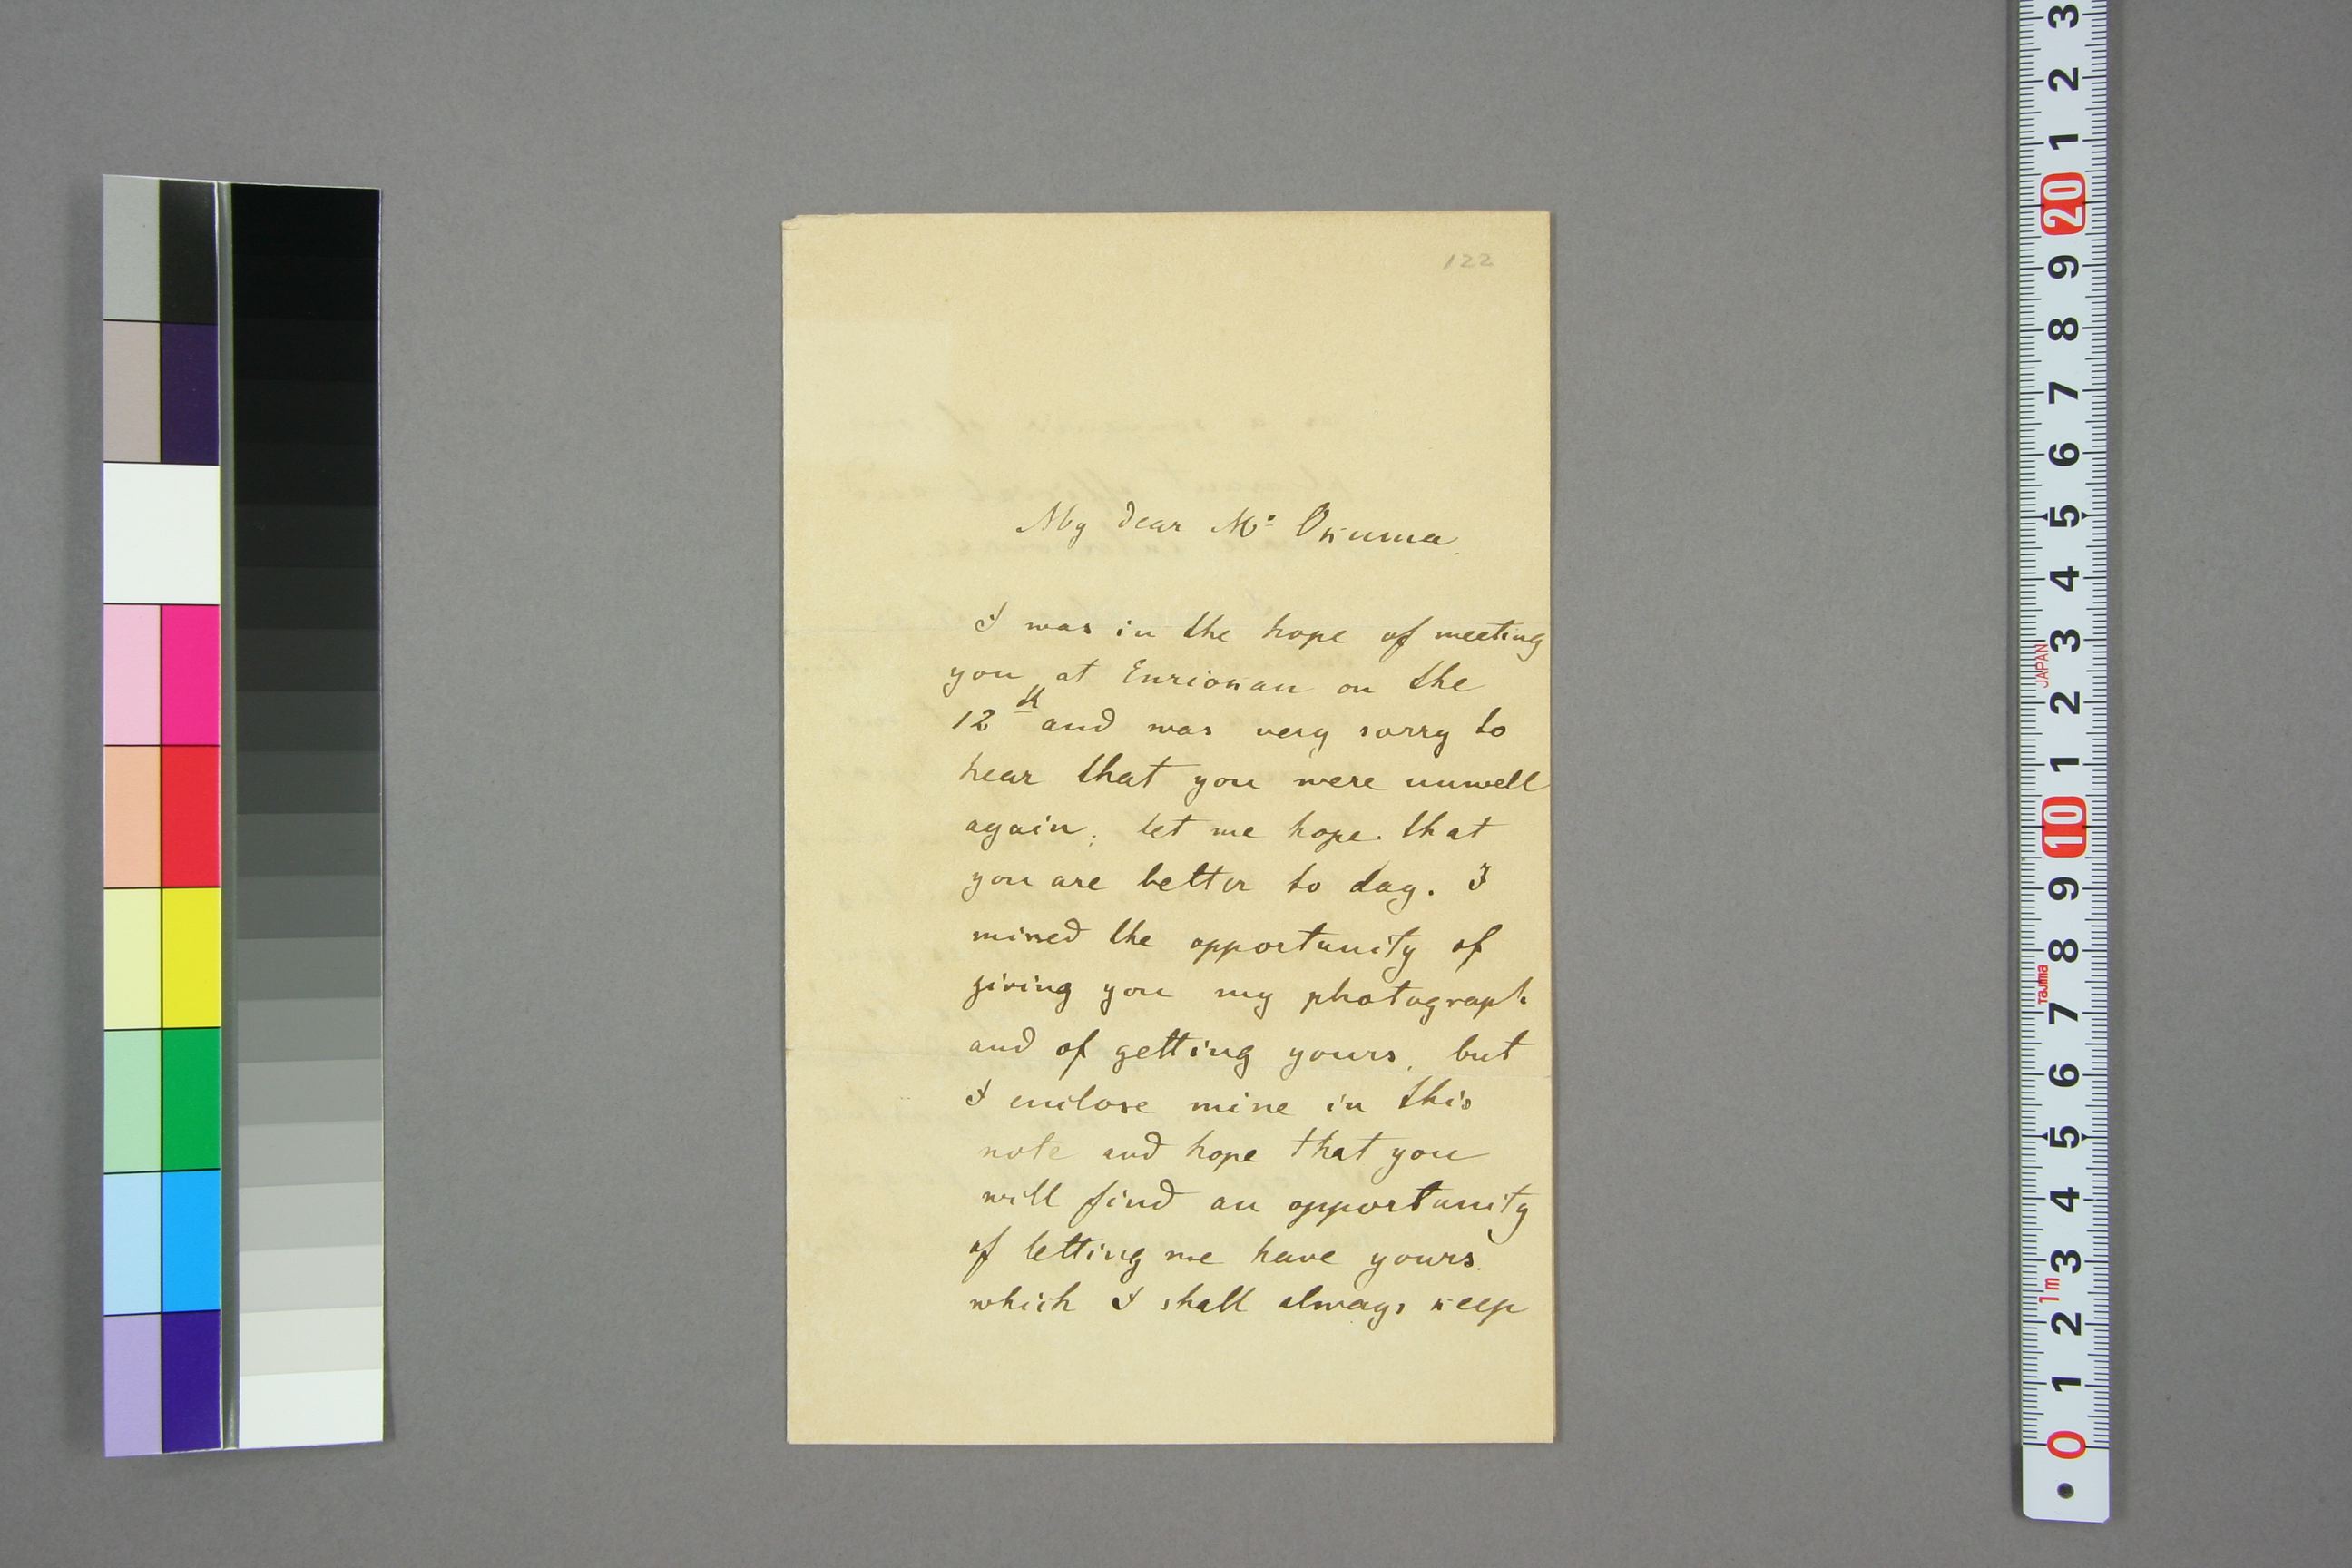 122
My dear Mr. Okuma.
I was in the hope of meeting
you at Enriokan on the
12th and was very sorry to
hear that you were unwell
again; let me hope that
you are better to day. I
missed the opportunity of
giving you my photograph
and of getting yours, but
I enclose mine in this
note and hope that you
will find an opportunity
of letting me have yours.
which I shall always keep
3
2
1
20
9
8
7
6
5
4
3
JAPAN
2
1
10
9
8
Tajima
7
6
5
4
3
1m
2
1
0